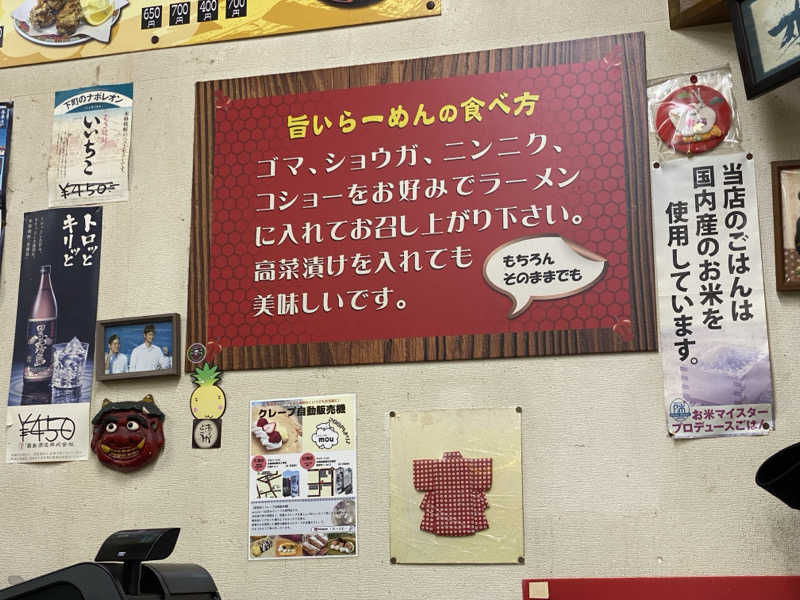 650円
700円
400円
700
下町のナポレオン
いいちこ
¥450
トロッと
キリッと
¥450
旨いらーめんの食べ方
ゴマ、ショウガ、ニンニク、
コショーをお好みでラーメン
に入れてお召し上がり下さい。
高菜漬けを入れても
美味しいです。
もちろん
そのままでも
当店のごはんは
国内産のお米を
使用しています。
お米マイスター
プロデュースごはん
クレープ自動販売機
mou